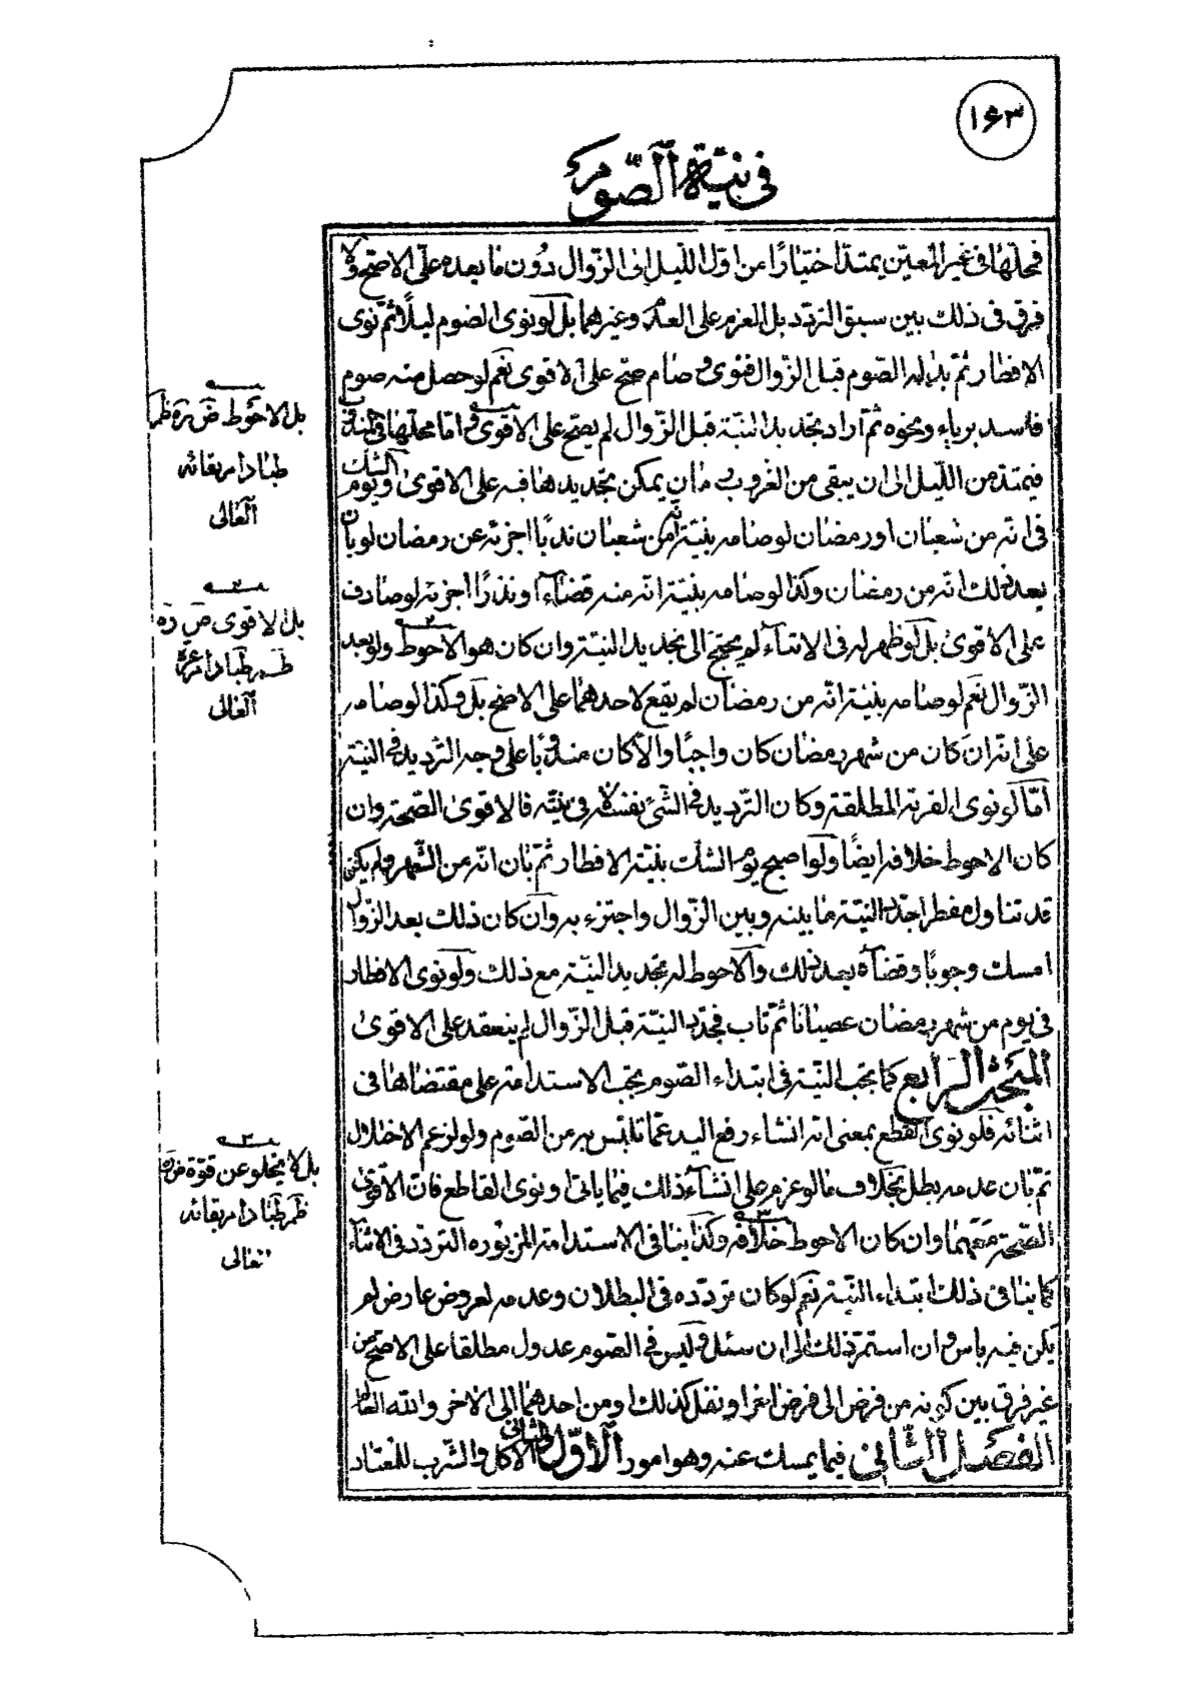 ۱۶۳
فى نيّة الصّوم
فمحلّها فى غير المعيّن يمتدّ اختيارًا من اوّل اللّيل الى الزّوال دون ما بعده على الاصحّ ولا
فرق فى ذلك بين سبق التردّد بل العزم على العدم وغيرهما بل لو نوى الصّوم ليلًا ثمّ نوى
الافطار ثمّ بدا له الصّوم قبل الزّوال فنوى وصام صحّ على الاقوى نعم لو حصل منه صوم
فاسد برياء ونحوه ثمّ اراد تجديد النيّة قبل الزّوال لم يصحّ على الاقوى و امّا محلّها فى المندوب
فيمتدّ من اللّيل الى ان يبقى من الغروب زمان يمكن تجديدها فيه على الاقوى ويوم الشك
فى انّه من شعبان او رمضان لو صامه بنيّة انّه من شعبان ندبًا اجزئه عن رمضان لو بان
بعد ذلك انّه من رمضان وكذا لو صامه بنيّة انّه منه قضاءً او نذرًا اجزئه لو صادف
على الاقوى بل لو ظهر له فى الاثناء لم يحتج الى تجديد النيّة وان كان هو الاحوط ولو بعد
الزّوال نعم لو صامه بنيّة انّه من رمضان لم يقع لاحدهما على الاصحّ بل وكذا لو صامه
على انّه ان كان من شهر رمضان كان واجبًا والّا كان مندوبًا على وجه الترديد فى النيّة
امّا لو نوى القربة المطلقة وكان الترديد فى الشّئ نفسه لا فى نيّته فالاقوى الصّحة وان
كان الاحوط خلافه ايضًا ولو اصبح يوم الشك بنيّة الافطار ثمّ بان انّه من الشّهر ولم يكن
قد تناول مفطرا جدّد النيّة ما بينه وبين الزّوال واجتزء به وان كان ذلك بعد الزّوال
امسك وجوبًا وقضاه بعد ذلك والاحوط له تجديد النيّة مع ذلك ولو نوى الافطار
فى يوم من شهر رمضان عصيانًا ثمّ تاب فجدّد النيّة قبل الزّوال لم ينعقد على الاقوى
المبحث الرّابع كما يجب النيّة فى ابتداء الصّوم يجب الاستدامة على مقتضاها فى
اثنائه فلو نوى القطع بمعنى انه انشاء رفع اليد عمّا تلبّس به من الصّوم ولو لزعم الاختلال
ثمّ بان عدمه بطل بخلاف ما لو عزم على انشاء ذلك فيما ياتى او نوى القاطع فانّ الاقوى
الصّحة فيهما وان كان الاحوط خلافه وكذا ينافى الاستدامة المزبوره التردّد فى الاثناء
كما ينافى ذلك ابتداء النيّة نعم لو كان تردّده فى البطلان وعدمه لعروض عارض لم
يكن فيه باس وان استمرّ ذلك الى ان سئل وليس فى الصّوم عدول مطلقا على الاصحّ من
غير فرق بين كونه من فرض الى فرض اخر او نفل كذلك او من احدهما الى الاخر والله العالم
الفصل الثّانى فيما يمسك عنه وهو امور الاوّل والثانى الاكل والشّرب للمعتاد
بل الاحوط
طبا دام بقائه
العالى
۲
بل الاقوى
العالى
۳
بل لا يخلو عن قوّة
طبا دام بقائه
تعالى